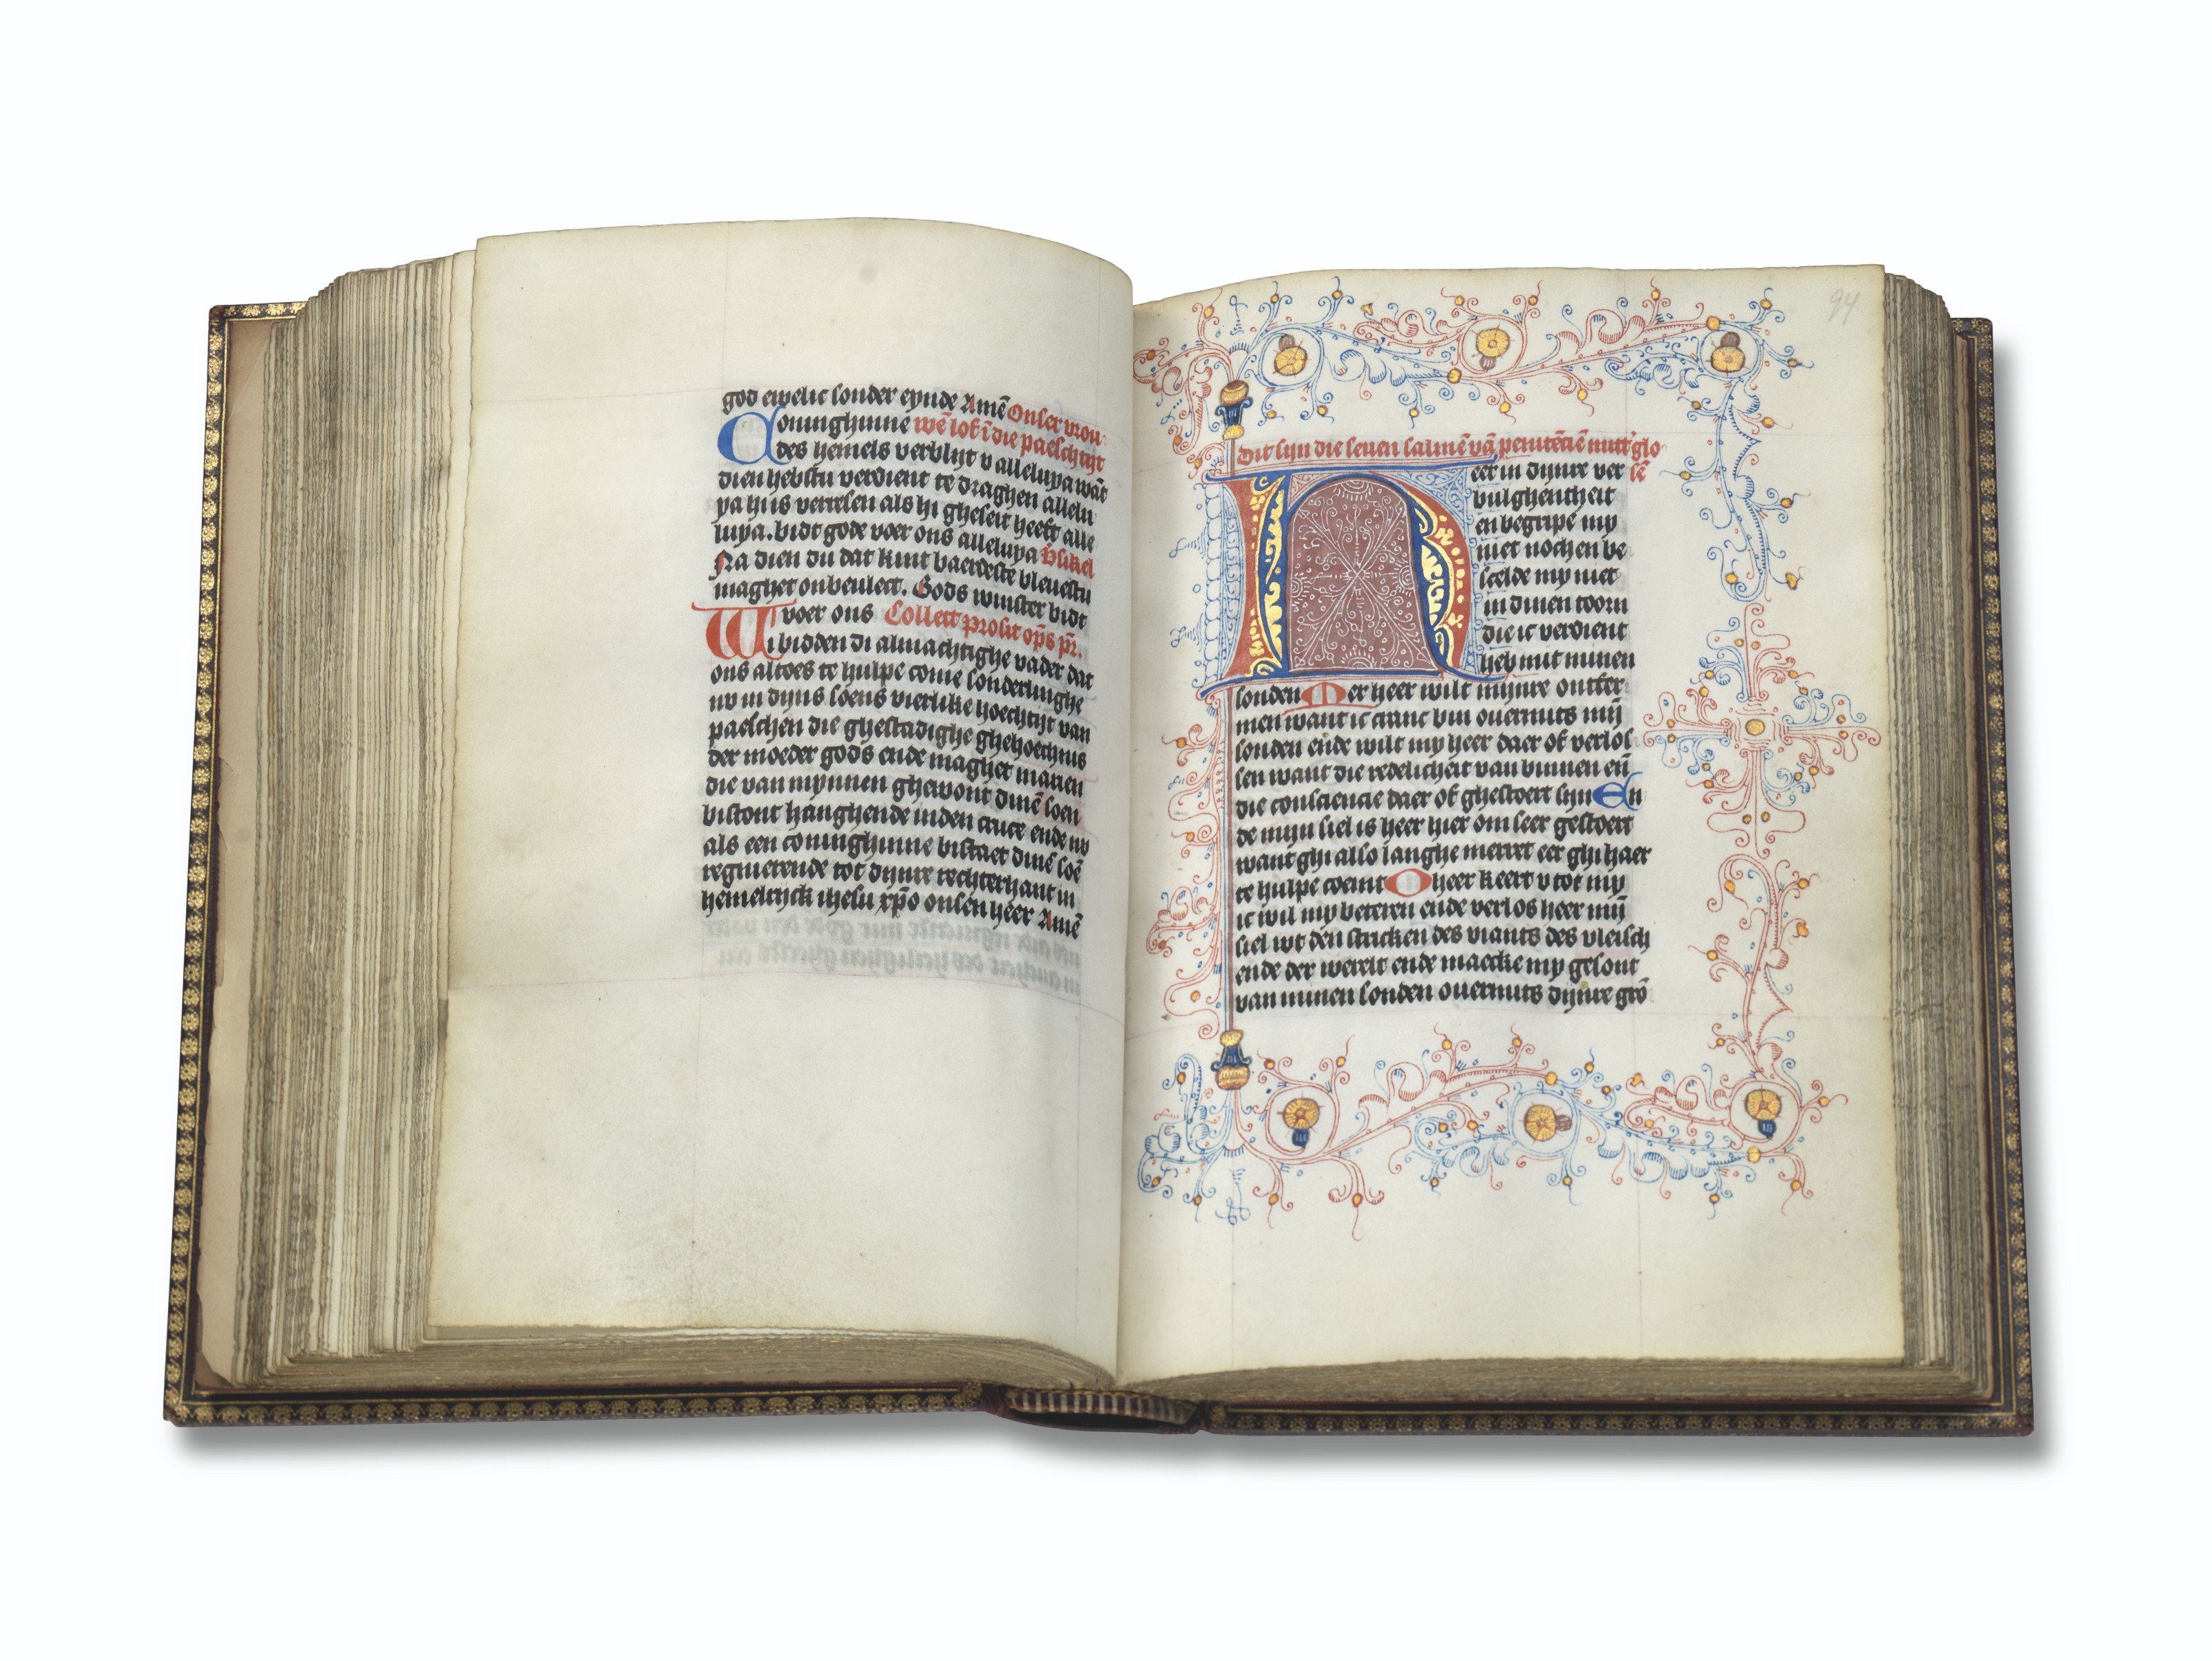 god ewelic sonder eynde Amē Onser vrou
oninghinne wē lof ī die paeschtijt
C des hemels verblijt v alleluya wāt
dien hebstu verdient te draghen allelu
ya hi is verresen als hi gheseit heeft alle
luya. bidt gode voer ons alleluya v̄sikel
Na dien du dat kint baerdeste bleuestu
maghet onbeulect. Gods winster bidt
voer ons Collect prosit op̄s pr̄.
Wi bidden di almachtighe vader dat
ons altoes te hulpe come sonderlinghe
nv in dijns soens vierlike hoechtijt van
paeschen die ghestadighe ghehoechnis
der moeder gods ende maghet marien
die van mynnen ghewont dinē soen
bistont hanghende inden cruce ende nv
als een coninghinne bistaet dinē soē
regnerende tot dijnre rechterhant in
hemelrijck ihesu xp̄o onsen heer Amē
94
Dit sijn die seuen salmē vā penitēciē mitt' glo
Heer in dijnre ver sē
bulghentheit
en begripe my
niet noch en be
scelde my niet
in dinen toorn
die ic verdient
heb mit minen
sonden Mer heer wilt mijnre ontfer
men want ic cranc bin ouermits mij̄
sonden ende wilt my heer daer of verlos
sen want die redelicheit van binnen en̄
die consciencie daer of ghestoert sijn En
de mijn siel is heer hier om seer gestoert
want ghi also langhe merret eer ghi haer
te hulpe coemt O heer keert v tot my
ic wil my beteren ende verlos heer mij̄
siel wt den stricken des viants des vleisch
ende der werelt ende maecke my gesont
van minen sonden ouermits dijnre gro